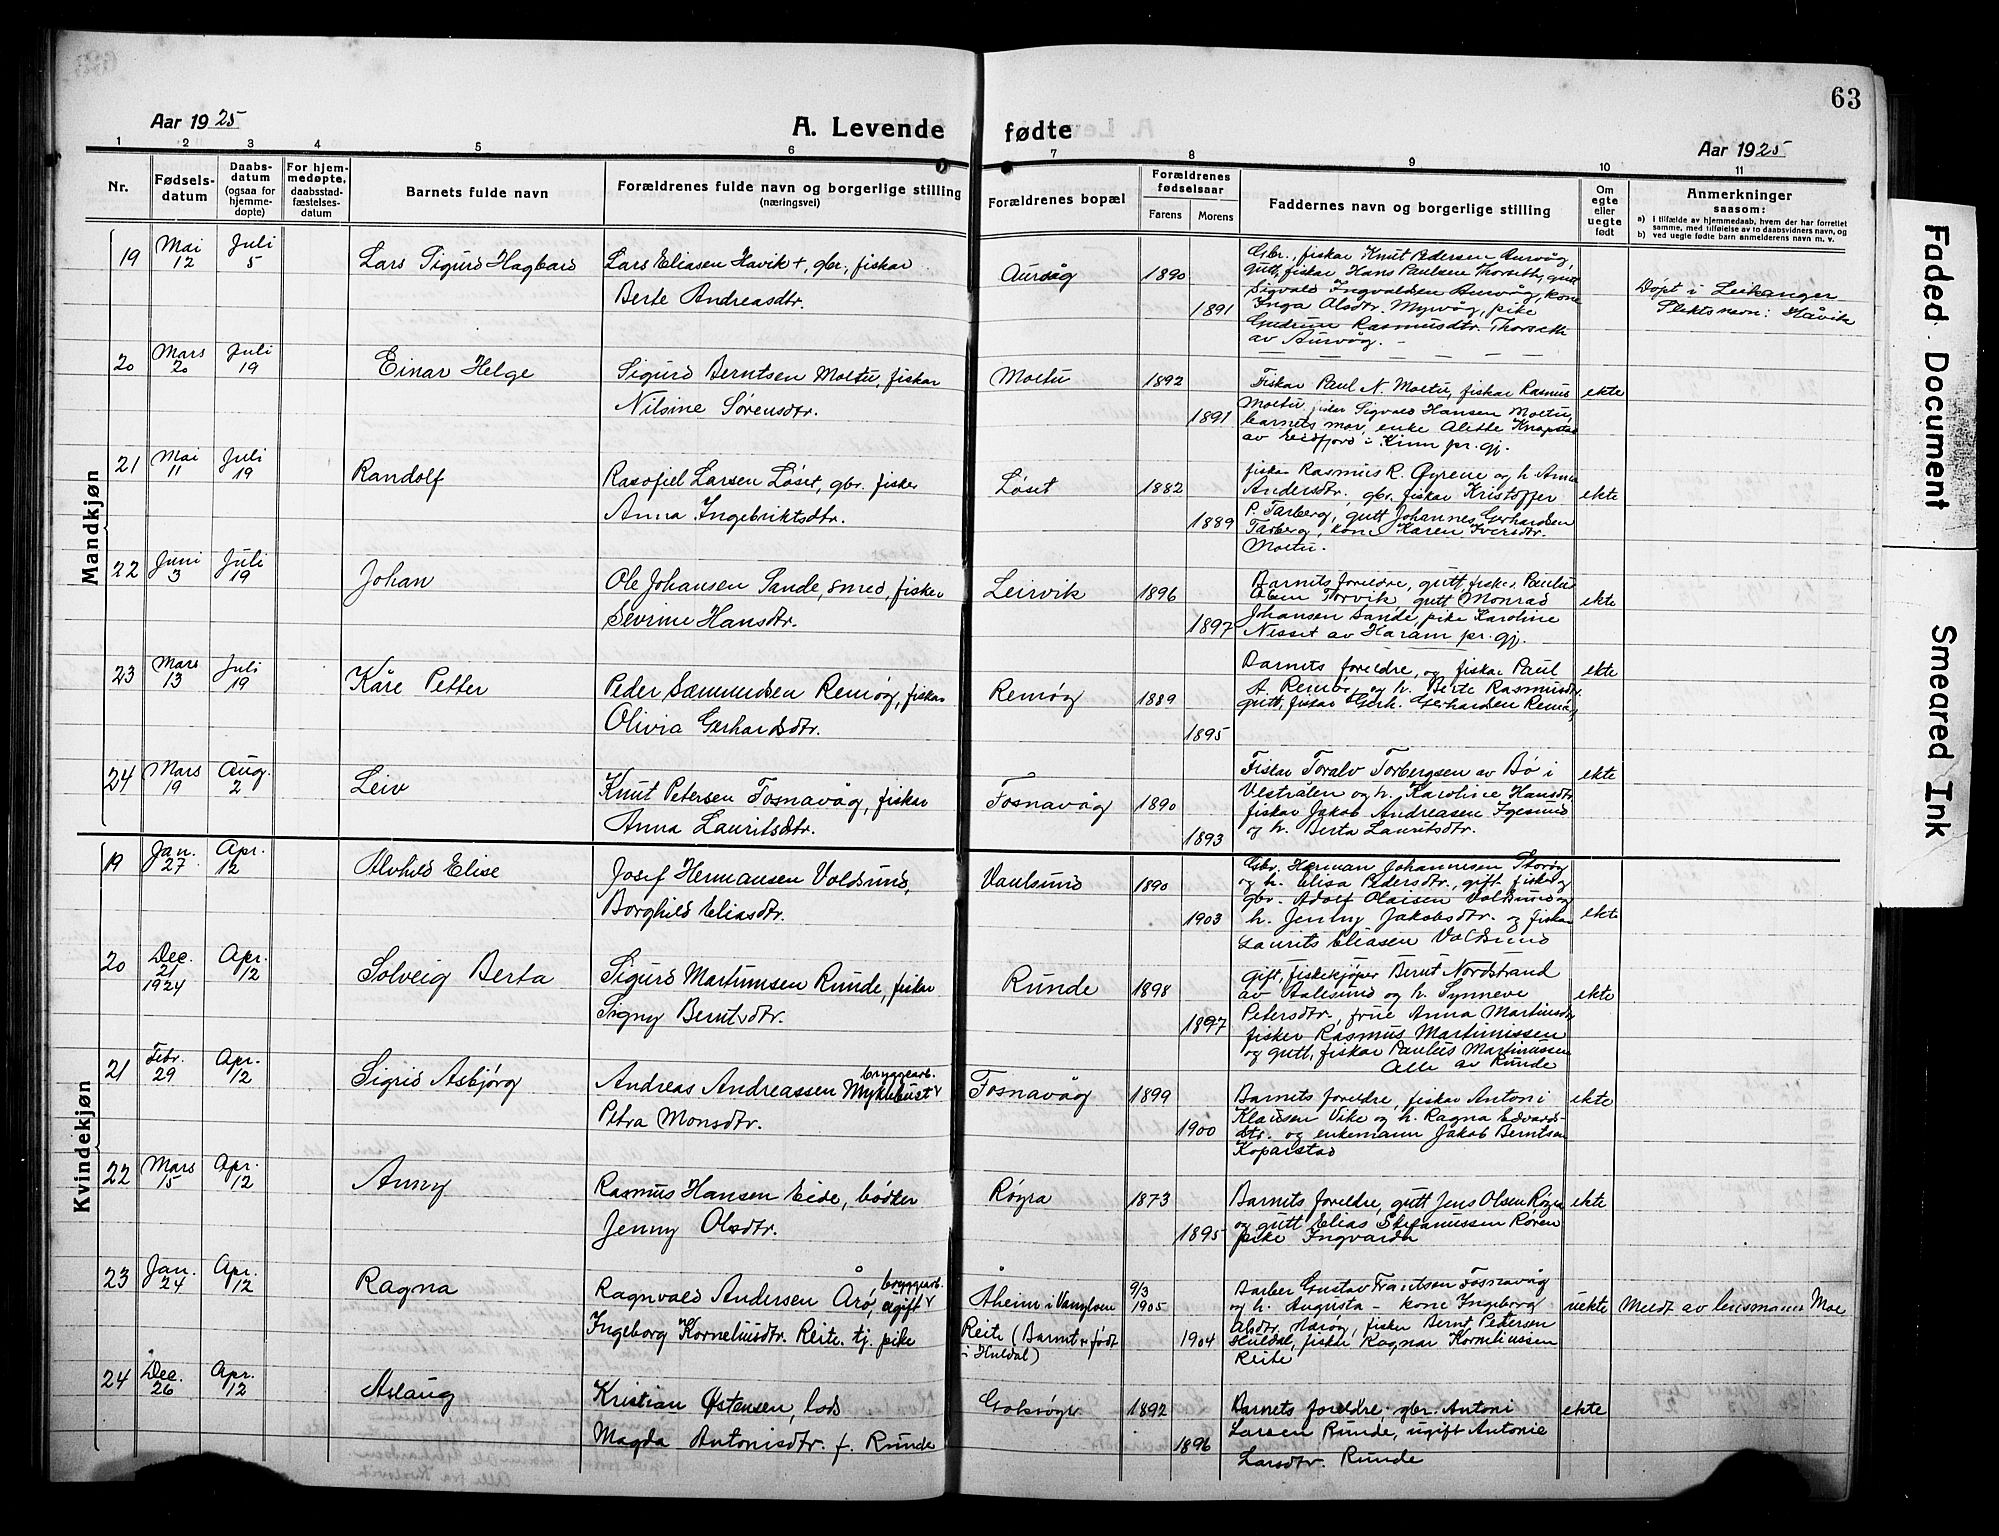 63
Aar 1925
A. Levende fødte
Aar 1925
1 2 3 4 5 6 7 8 9 10 11
Nr.
Fødsels-
datum
Daabs-
datum
(ogsaa for
hjemme-
døpte)
For hjem-
medøpte,
daabsstad-
fæstelses-
datum
Barnets fulde navn
Forældrenes fulde navn og borgerlige stilling
(næringsvei)
Forældrenes bopæl
Forældrenes
fødselsaar
Farens Morens
Faddernes navn og borgerlige stilling
Om
egte
eller
uegte
født
Anmerkninger
saasom:
a) i tilfælde av hjemmedaab, hvem der har forrettet
samme, med tilføielse av to daabsvidners navn, og
b) ved uegte født barn anmelderens navn m. v.
Mandkjøn
19 Mai 12 Juli 5 Lars Sigurd Hagbard
Lars Eliasen Havik +, gbr., fiskar
Berte Andreasdtr.
Aurvåg 1890 1891
Gbr., fiskar Knut Pedersen Aurvåg,
gutt, fiskar Hans Paulsen Thorseth, gutt
Sigvald Ingvaldsen Aurvåg, kone
Inga Olsdtr. Myrvåg, pike
Gudrun Rasmusdtr. Thorseth
av Aurvåg. -
Døpt i Leikanger
Slektsnavn: Håvik
20 Mars 20 Juli 19 Einar Helge
Sigurd Berntsen Moltu, fiskar
Nilsine Sørensdtr.
Moltu 1892 1891
Fiskar Paul N. Moltu, fiskar Rasmus
Moltu, fiskar Sigvald Hansen Moltu,
barnets mor, enke Alette Knapstad
av Eidfjord i Kinn pr. gj.
ekte
21 Mai 11 Juli 19 Randolf
Rasofiel Larsen Løset, gbr. fisker
Anna Ingebriktsdtr.
Løset 1882 1889
fiskar Rasmus R. Øyrene og h. Anna
Andersdtr. gbr. fiskar Kristoffer
P. Tarberg, gutt Johannes Gerhardsen
Tarberg, kone Karen Iversdtr.
Moltu.
ekte
22 Juni 3 Juli 19 Johan
Ole Johansen Sande, smed, fisker
Sevrine Hansdtr.
Leirvik 1896 1897
Barnets foreldre, gutt, fisker Paulus
Olsen Torvik, gutt Monrad
Johansen Sande, pike Karoline
Nesset av Haram pr. gj.
ekte
23 Mars 13 Juli 19 Kåre Petter
Peder Sæmundsen Remøy, fiskar
Olivia Gerhardsdtr.
Remøy 1889 1895
Barnets foreldre, og fiskar Paul
A. Remøy og h. Berte Rasmusdtr.
gutt, fiskar Gerh. Gerhardsen Remøy
ekte
24 Mars 19 Aug. 2 Leiv
Knut Petersen Fosnavåg, fiskar
Anna Lauritsdtr.
Fosnavåg 1890 1893
Fiskar Toralv Torbergsen av Bø i
Vestrålen og h. Karoline Hansdtr.
fiskar Jakob Andreasen Igesund
og h. Berta Lauritsdtr.
ekte
Kvindekjøn
19 Jan. 27 Apr. 12 Alvhild Elise
Josef Hermansen Voldsund,
Borghild Eliasdtr.
Vaulsund 1890 1903
Gbr. Herman Johannesen Storøy
og h. Elisa Pedersdtr., gift fiskar
gbr. Adolf Olaisen Voldsund og
h. Jenny Jakobsdtr. og fiskar
Laurits Eliasen Voldsund
ekte
20 Dec. 21 1924 Apr. 12 Solveig Berta
Sigurd Martinusen Runde, fiskar
Signy Berntsdtr.
Runde 1898 1897
gift, fiskekjøper Bernt Nordstrand
av Aalesund og h. Synneve
Petersdtr., frue Anna Martinsdtr.
fisker Rasmus Martinussen
og gutt, fiskar Paulus Martinussen
Alle av Runde
ekte
21 Febr. 29 Apr. 12 Sigrid Asbjørg
Andreas Andreassen Myklebust bryggearb.
Petra Monsdtr.
Fosnavåg 1899 1900
Barnets foreldre, fiskar Antoni
Klausen Vike og h. Ragna Edvards-
dtr. og enkemann Jakob Berntsen
Koparstad
ekte
22 Mars 15 Apr. 12 Anny
Rasmus Hansen Eide, bødker
Jenny Olsdtr.
Røyra 1873 1895
Barnets foreldre, gutt Jens Olsen Røyra
og gutt Elias Stefanussen Røren
pike Ingvarda
ekte
23 Jan. 24 Apr. 12 Ragna
Ragnvald Andersen Årø, ugift bryggearb.
Ingeborg Korneliusdtr. Reite, tj. pike
Åheim i Vanylven
Reite (Barnet er født
i Huldal)
9/3 1905 1904
Barber Gustav Frantsen Fosnavåg
og h. Augusta - kone Ingeborg
Olsdtr. Nærøy, fisker Bernt Pedersen
Huldal, fiskar Ragnar Korneliussen
Reite
uekte Meldt av lensmann Moe
24 Dec. 26 Apr. 12 Aslaug
Kristian Østensen, lods
Magda Antonisdtr. f. Runde
Goksøyr 1892 1896
Barnets foreldre, gbr. Antoni
Larsen Runde, ugift Antonie
Larsdtr. Runde
ekte
Faded Document
Smeared Ink